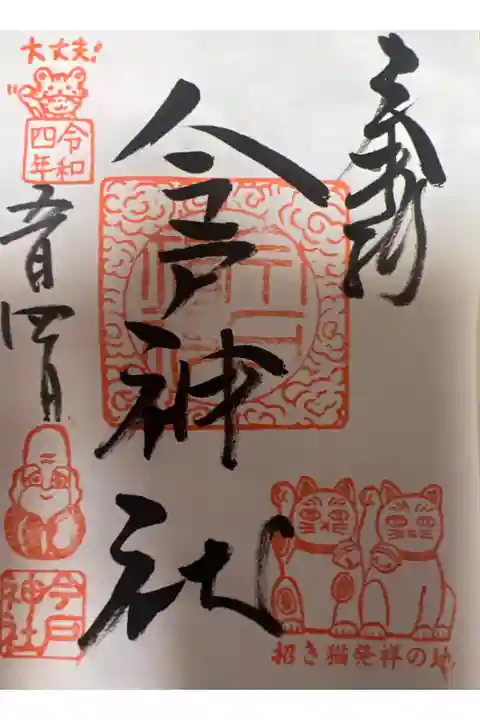 奉拝
今戸神社
大丈夫!
令和
四年
五月四日
今戸
神社
招き猫発祥の地